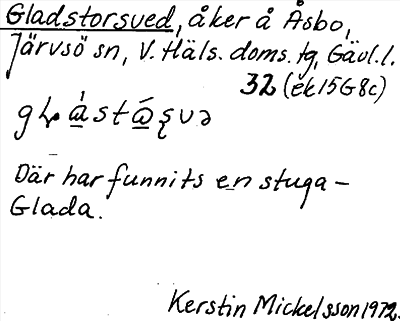 Gladstorsved, åker å Åsbo,
Järvsö sn, V. Häls. doms. tg, Gävl. l.
32 (ek 15G8c)
Där har funnits en stuga –
Glada.
Kerstin Mickelsson 1972.